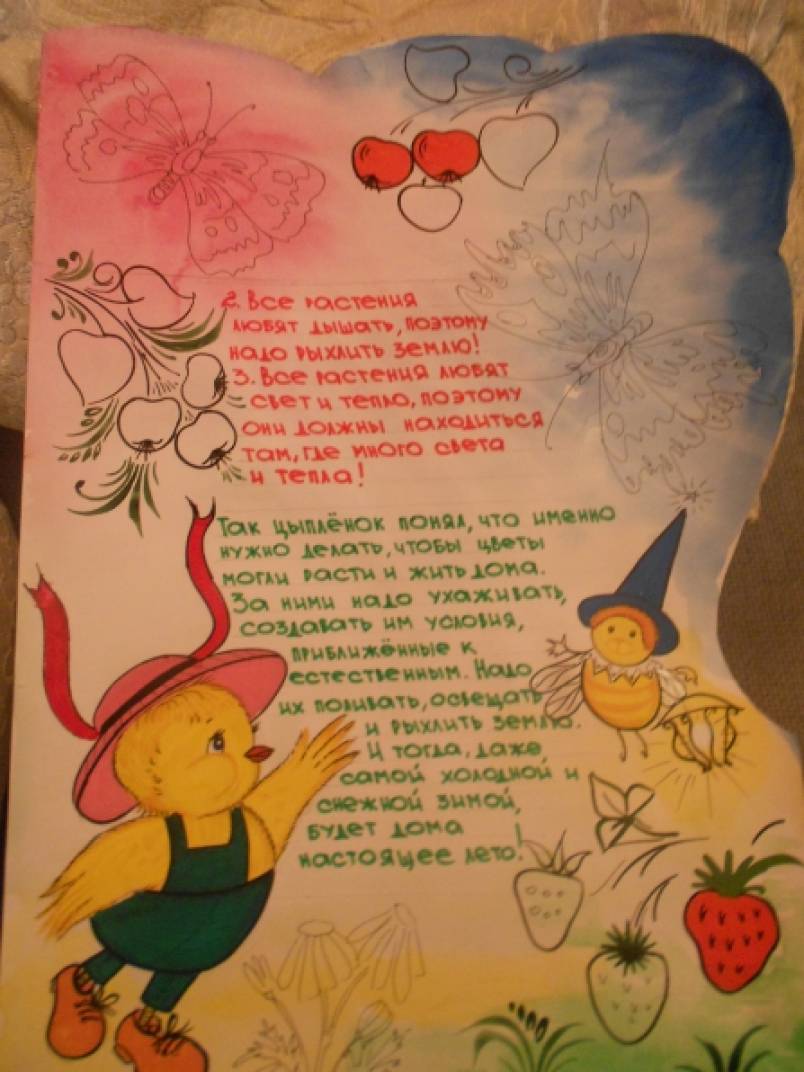 2. Все растения
любят дышать, поэтому
надо рыхлить землю!
3. Все растения любят
свет и тепло, поэтому
они должны находиться
там, где много света
и тепла!
Так цыплёнок понял, что именно
нужно делать, чтобы цветы
могли расти и жить дома.
За ними надо ухаживать,
создавать им условия,
приближённые к
естественным. Надо
их поливать, освещать
и рыхлить землю.
И тогда, даже
самой холодной и
снежной зимой,
будет дома
настоящее лето!